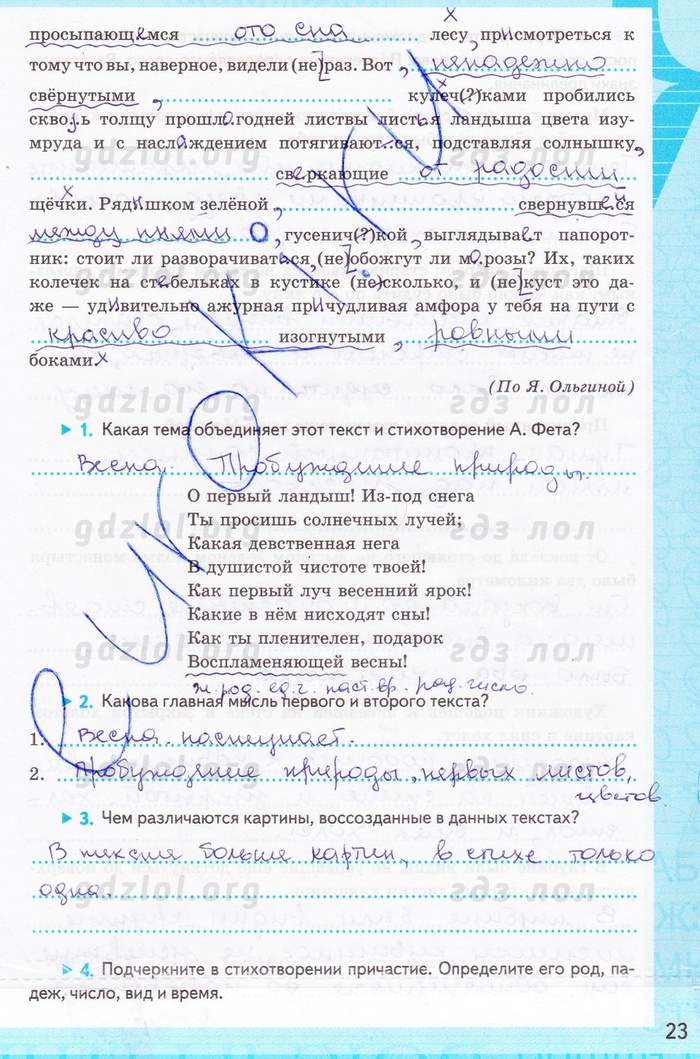 просыпающемся ото сна лесу, присмотреться к
тому что вы, наверное, видели (не)раз. Вот, ненадежно
свёрнутыми, кулеч(?)ками пробились
сквозь толщу прошлогодней листвы листья ландыша цвета изу-
мруда и с наслаждением потягивают..ся, подставляя солнышку,
сверкающие от радости
щёчки. Рядишком зелёной, свернувшейся
между пнями, гусенич(?)кой, выглядывает папорот-
ник: стоит ли разворачиваться, (не)обожгут ли морозы? Их, таких
колечек на стебельках в кустике (не)сколько, и (не)куст это да-
же — удивительно ажурная причудливая амфора у тебя на пути с
красиво изогнутыми, ровными
боками.
(По Я. Ольгиной)
1. Какая тема объединяет этот текст и стихотворение А. Фета?
Весна. Пробуждение природы.
О первый ландыш! Из-под снега
Ты просишь солнечных лучей;
Какая девственная нега
В душистой чистоте твоей!
Как первый луч весенний ярок!
Какие в нём нисходят сны!
Как ты пленителен, подарок
Воспламеняющей весны!
ж. род. ед. ч. наст. вр. род. число.
2. Какова главная мысль первого и второго текста?
1. Весна наступает.
2. Пробуждение природы, первых листов,
цветов.
3. Чем различаются картины, воссозданные в данных текстах?
В тексте больше картин, в стихе только
одна.
4. Подчеркните в стихотворении причастие. Определите его род, па-
деж, число, вид и время.
23
gdzlol.org гдз лол
gdzlol.org гдз лол
gdzlol.org гдз лол
gdzlol.org гдз лол
gdzlol.org гдз лол
gdzlol.org гдз лол
gdzlol.org гдз лол